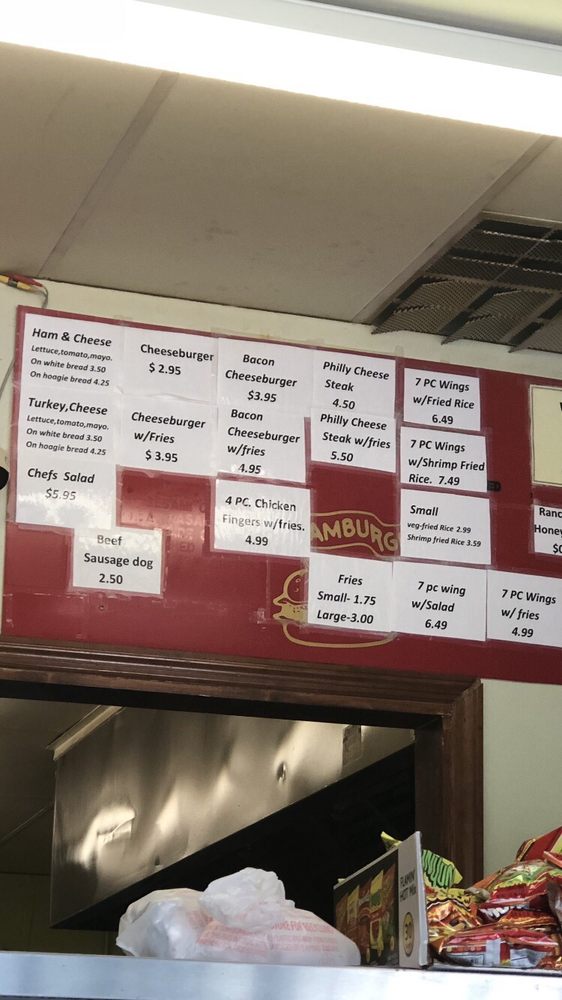 Ham & Cheese
Lettuce,tomato,mayo.
On white bread 3.50
On hoagie bread 4.25
Turkey,Cheese
Lettuce,tomato,mayo.
On white bread 3.50
On hoagie bread 4.25
Chefs Salad
$5.95
Beef
Sausage dog
2.50
Cheeseburger
$ 2.95
Cheeseburger
w/Fries
$ 3.95
Bacon
Cheeseburger
$3.95
Bacon
Cheeseburger
w/fries
4.95
4 PC. Chicken
Fingers w/fries.
4.99
Philly Cheese
Steak
4.50
Philly Cheese
Steak w/fries
5.50
AMBURG
Fries
Small- 1.75
Large-3.00
7 PC Wings
w/Fried Rice
6.49
7 PC Wings
w/Shrimp Fried
Rice. 7.49
Small
veg-fried Rice 2.99
Shrimp fried Rice 3.59
7 pc wing
w/Salad
6.49
7 PC Wings
w/ fries
4.99
Ranc
Honey
$0
FLAMIN'
HOT MIX